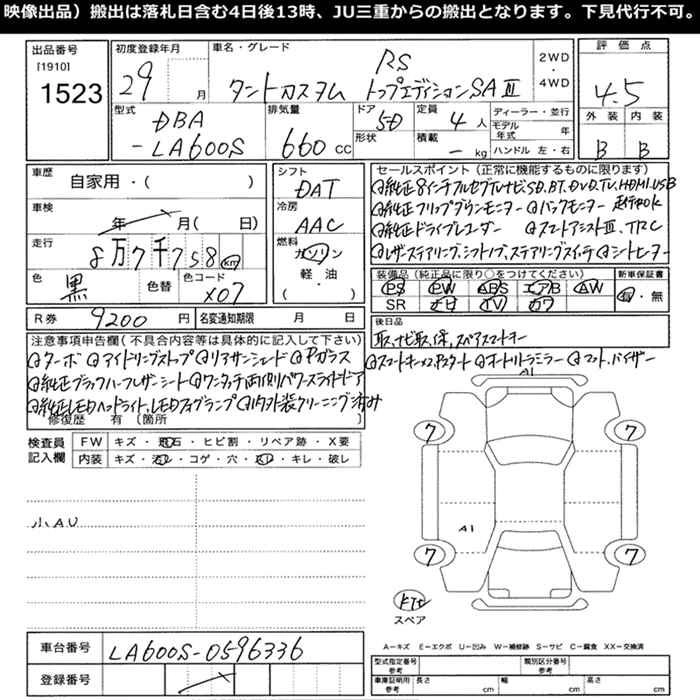 映像出品）搬出は落札日含む4日後13時、JU三重からの搬出となります。下見代行不可。
出品番号
[1910]
1523
初度登録年月
29 月
車名・グレード
RS
タントカスタム トップエディションSAⅢ
2WD
・
4WD
評価点
4.5
外装 内装
B B
型式
DBA
-LA600S
排気量
660 cc
ドア
5D
形状
定員
4 人
積載
- kg
ディーラー・並行
モデル年式 年
ハンドル 左・右
車歴
自家用・( )
車検
年 月( 日)
走行
8万7千758 km
色
黒
色替
色コード
X07
シフト
DAT
冷房
AAC
燃料
ガソリン
軽・油
( )
セールスポイント（正常に機能するものに限ります）
◎純正8インチフルセグTVナビ,SD,BT,DVD,TV,HDMI,USB
◎純正フリップダウンモニター ◎バックモニター 走行中OK
◎純正ドライブレコーダー ◎スマートアシストⅢ, TRC
◎レザーステアリング,シフトノブ,ステアリングスイッチ ◎シートヒーター
装備品（純正品に限り○をつけてください）
PS PW ABS エアB AW
SR ナビ TV カワ
新車保証書
有・無
R券 9200 円
名変通知期限 月 日
後日品
取,ナビ取,保,スペアスマートキー
注意事項申告欄（不具合内容等は具体的に記入して下さい）
◎ターボ ◎アイドリングストップ ◎リヤサンシェード ◎Pガラス
◎スマートキー×2,Pスタート ◎オートリトラミラー ◎マット,バイザー
◎純正ブラックハーフレザーシート ◎ワンタッチ両側パワースライドドア
◎純正LEDヘッドライト,LEDフォグランプ ◎内外装クリーニング済み
修復歴 有（箇所 ）
検査員
記入欄
FW キズ・飛石・ヒビ割・リペア跡・X要
内装 キズ・汚レ・コゲ・穴・スレ・キレ・破レ
小AU
A1
7 7
A1
7 7
スペア
A＝キズ E＝エクボ U＝凹み W＝補修跡 S＝サビ C＝腐食 XX＝交換済
車台番号 LA600S-0596336
登録番号
型式指定番号
参考
類別区分番号
参考
車庫証明用
参考
長さ cm
幅 cm
高さ cm